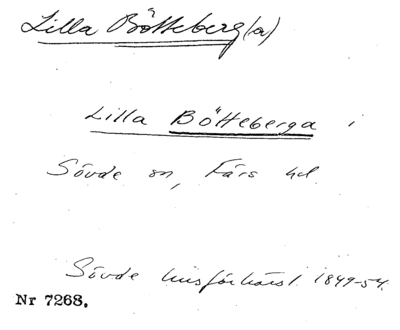 Lilla Bötteberg(a)
Lilla Bötteberga i
Sövde sn, Färs hd.
Sövde husförhörsl. 1849-54.
Nr 7268.